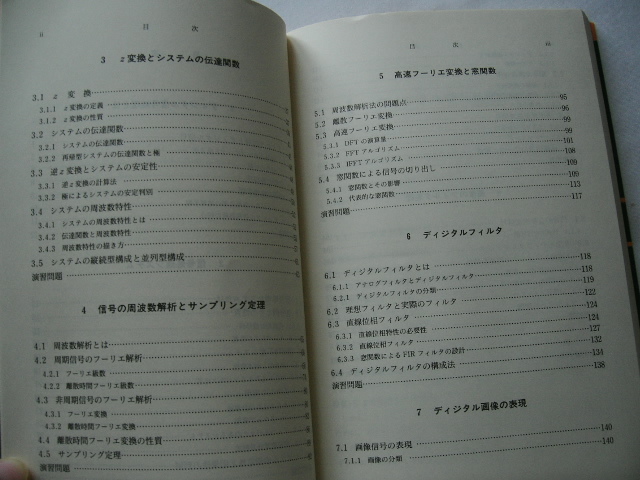 ii 目次
3 z変換とシステムの伝達関数
3.1 z 変 換
3.1.1 z変換の定義
3.1.2 z変換の性質
3.2 システムの伝達関数
3.2.1 システムの伝達関数
3.2.2 再帰型システムの伝達関数と極
3.3 逆z変換とシステムの安定性
3.3.1 逆z変換の計算法
3.3.2 極によるシステムの安定判別
3.4 システムの周波数特性
3.4.1 システムの周波数特性とは
3.4.2 伝達関数と周波数特性
3.4.3 周波数特性の描き方
3.5 システムの縦続型構成と並列型構成
演習問題
4 信号の周波数解析とサンプリング定理
4.1 周波数解析とは
4.2 周期信号のフーリエ解析
4.2.1 フーリエ級数
4.2.2 離散時間フーリエ級数
4.3 非周期信号のフーリエ解析
4.3.1 フーリエ変換
4.3.2 離散時間フーリエ変換
4.4 離散時間フーリエ変換の性質
4.5 サンプリング定理
演習問題
目次 iii
5 高速フーリエ変換と窓関数
5.1 周波数解析法の問題点 95
5.2 離散フーリエ変換 96
5.3 高速フーリエ変換 99
5.3.1 DFTの演算量 99
5.3.2 FFTアルゴリズム 101
5.3.3 IFFTアルゴリズム 108
5.4 窓関数による信号の切り出し 109
5.4.1 窓関数とその影響 109
5.4.2 代表的な窓関数 113
演習問題 117
6 ディジタルフィルタ
6.1 ディジタルフィルタとは 118
6.1.1 アナログフィルタとディジタルフィルタ 118
6.2.1 ディジタルフィルタの分類 119
6.2 理想フィルタと実際のフィルタ 122
6.3 直線位相フィルタ 124
6.3.1 直線位相特性の必要性 124
6.3.2 直線位相フィルタ 127
6.3.3 窓関数によるFIRフィルタの設計 132
6.4 ディジタルフィルタの構成法 134
演習問題 138
7 ディジタル画像の表現
7.1 画像信号の表現 140
7.1.1 画像の分類 140